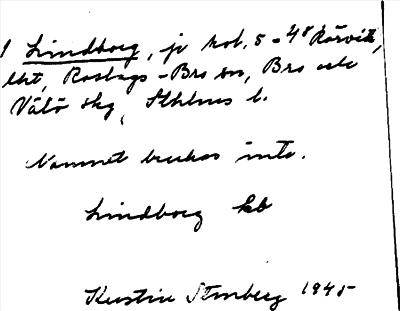 1 Lindborg, jr kob. 5-48 Kårvik,
lht, Roslags-Bro sn, Bro och
Vätö skg, Sthlms l.
Namnet brukas inte.
Lindborg kb
Kerstin Stenberg 1945